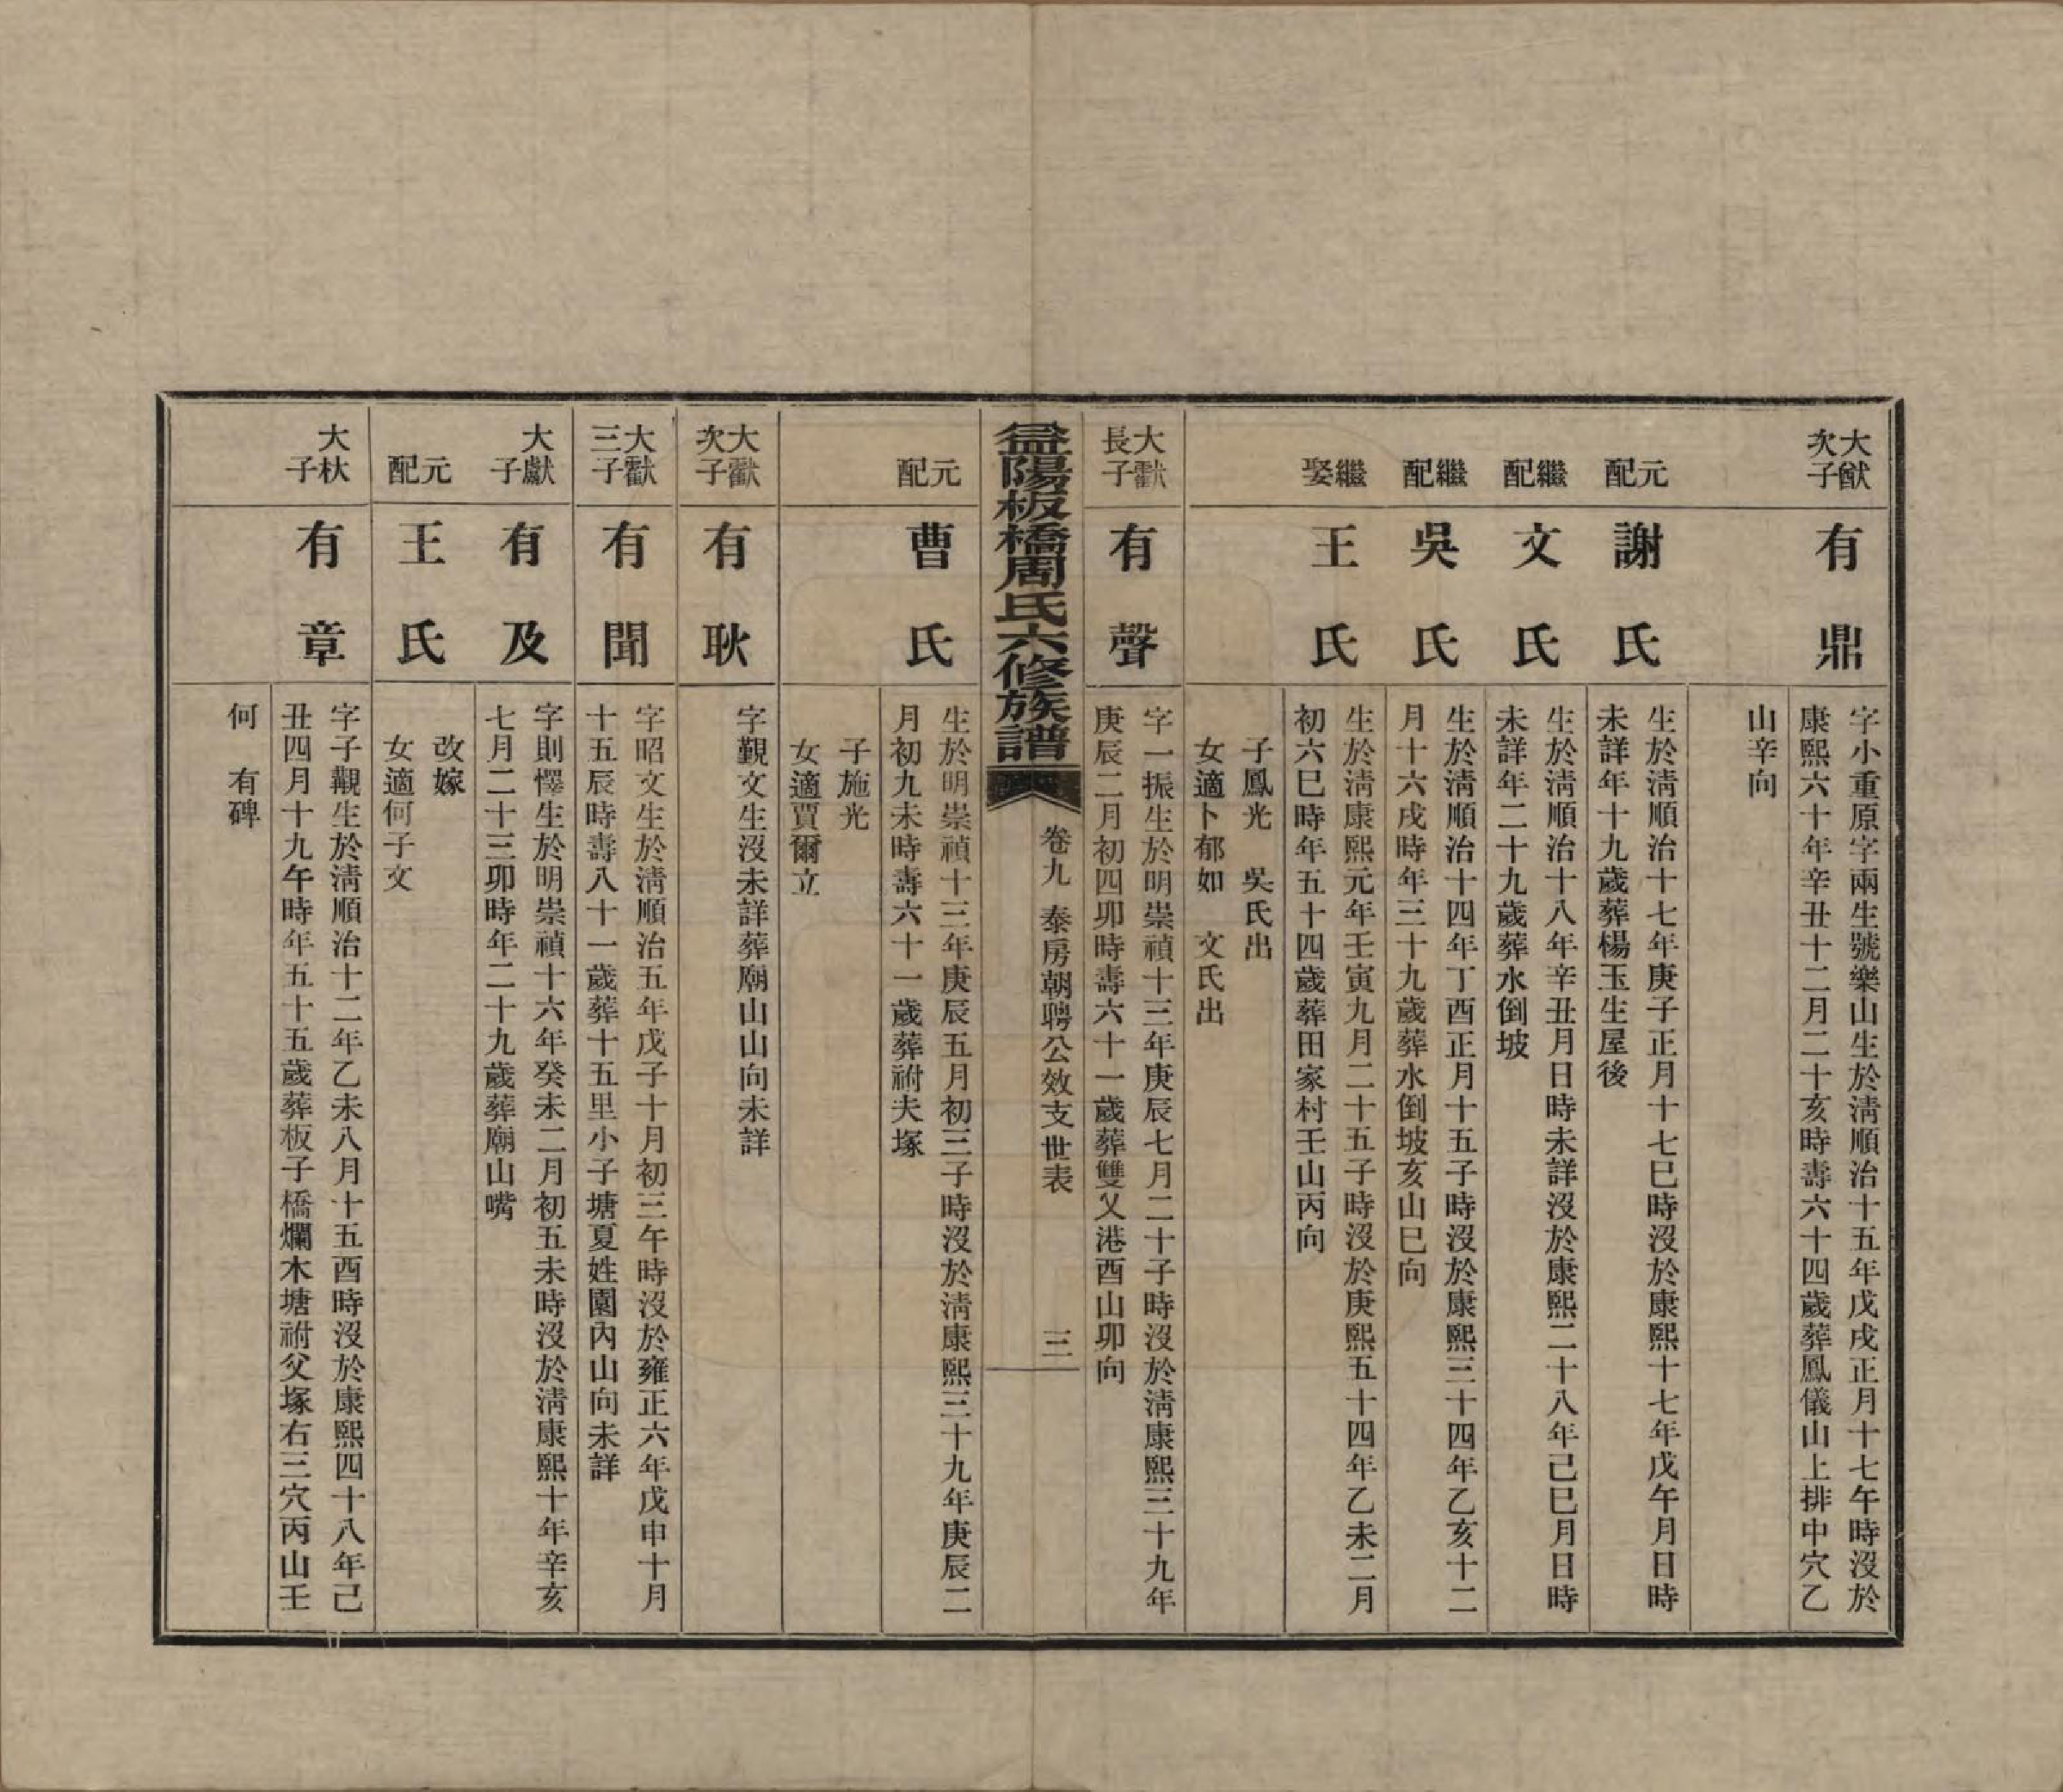 大猷次子
有鼎
字小重原字兩生號樂山生於清順治十五年戊戌正月十七午時沒於
康熙六十年辛丑十二月二十亥時壽六十四歲葬鳳儀山上排中穴乙
山辛向
元配
謝氏
生於清順治十七年庚子正月十七巳時沒於康熙十七年戊午月日時
未詳年十九歲葬楊玉生屋後
繼配
文氏
生於清順治十八年辛丑月日時未詳沒於康熙二十八年己巳月日時
未詳年二十九歲葬水倒坡
繼配
吳氏
生於清順治十四年丁酉正月十五子時沒於康熙三十四年乙亥十二
月十六戌時年三十九歲葬水倒坡亥山巳向
繼娶
王氏
生於清康熙元年壬寅九月二十五子時沒於庚熙五十四年乙未二月
初六巳時年五十四歲葬田家村壬山丙向
子鳳光 吳氏出
女適卜郁如 文氏出
大勸長子
有聲
字一振生於明崇禎十三年庚辰七月二十子時沒於清康熙三十九年
庚辰二月初四卯時壽六十一歲葬雙乂港酉山卯向
益陽板橋周氏六修族譜
卷九 泰房朝聘公效支世表
三
元配
曹氏
生於明崇禎十三年庚辰五月初三子時沒於清康熙三十九年庚辰二
月初九未時壽六十一歲葬祔夫塚
子施光
女適賈爾立
大勸次子
有耿
字覲文生沒未詳葬廟山山向未詳
大勸三子
有聞
字昭文生於清順治五年戊子十月初三午時沒於雍正六年戊申十月
十五辰時壽八十一歲葬十五里小子塘夏姓園內山向未詳
大獻子
有及
字則懌生於明崇禎十六年癸未二月初五未時沒於清康熙十年辛亥
七月二十三卯時年二十九歲葬廟山嘴
元配
王氏
改嫁
女適何子文
大杕子
有章
字子觀生於清順治十二年乙未八月十五酉時沒於康熙四十八年己
丑四月十九午時年五十五歲葬板子橋爛木塘祔父塚右三穴丙山壬
何 有碑